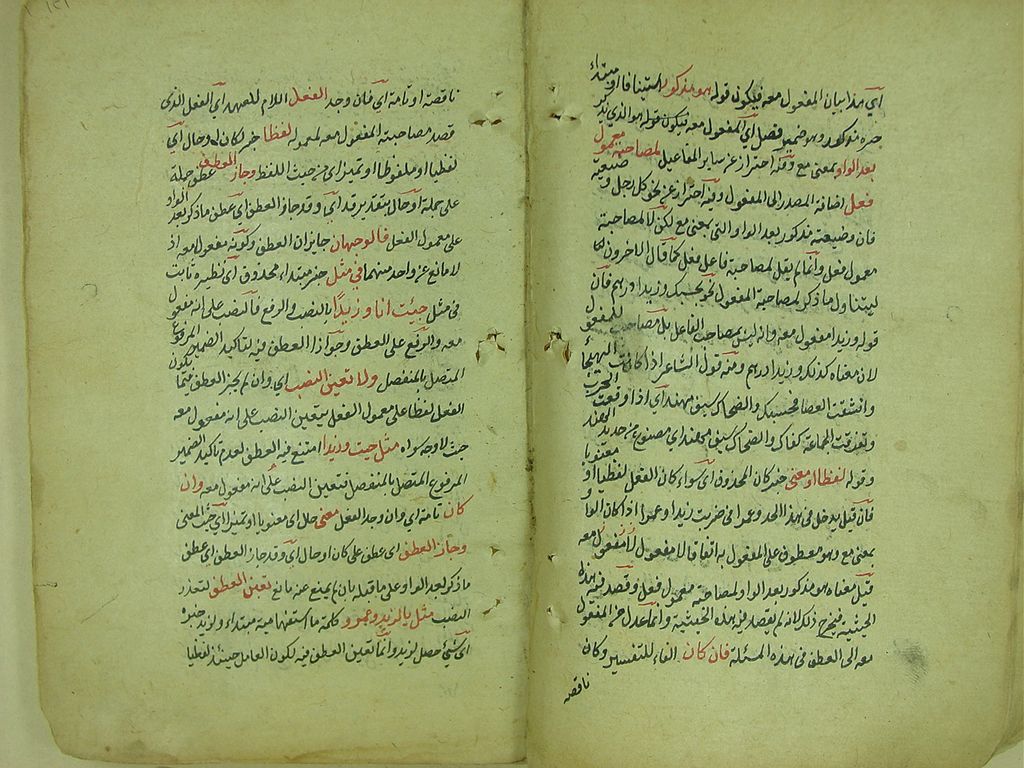 أي هذا بيان المفعول معه فيكون قوله هو مذكور استينافا او مبتداء
خبره مذكور وهو ضمير فصل أي المفعول معه فيكون قوله هو الذي يذكر
بعد الواو بمعنى مع وفيه احتراز عن سائر المفاعيل لمصاحبة معمول
فعل اضافة المصدر الى المفعول وفيه احتراز عن نحو كل رجل وضيعته
فان وضيعته مذكور بعد الواو التي بمعنى مع لكن لا لمصاحبة
معمول فعل وانما لم يقل لمصاحبة فاعل فعل كما قال الآخرون
ليتناول ما ذكر لمصاحبة المفعول نحو حسبك وزيدا درهم فان
قوله وزيدا مفعول معه وانه ليس بمصاحب الفاعل بل مصاحب للمفعول
لان معناه كذلك وزيدا درهم ومنه قول الشاعر اذا كانت الهيجاء
وانشقت العصا فحسبك والضحاك سيف مهند أي اذا وقعت الحرب
وتفرقت الجماعة كفاك والضحاك سيف مهند اي مصنوع من حديد الهند
وقوله لفظا او معنى خبر كان المحذوف أي سواء كان الفعل لفظيا او معنويا
فان قيل يدخل في هذا الحد وعمرا في ضربت زيدا وعمرا اذا كان الواو
بمعنى مع وهو معطوف على المفعول به اتفاقا لا مفعول معه
قيل معناه هو مذكور بعد الواو لمصاحبة معمول فعل وقصد فيه هذه
الحيثية فيخرج ذلك لانه لم يقصد فيه هذه الحيثية وانما عدل عن المفعول
معه الى العطف في هذه المسئلة فان كان الفاء للتفسير وكان
ناقصة
ناقصة او تامة أي فان وجد الفعل اللام للعهد أي الفعل الذي
قصد مصاحبة المفعول معه لمعموله لفظا خبر كان او حال أي
لفظيا او ملفوظا او تميز اي من حيث اللفظ وجاز العطف عطف جملة
على جملة او حال بتقدير قد أي وقد جاز العطف اي عطف ما ذكر بعد الواو
على معمول الفعل فالوجهان جايزان العطف وكونه مفعول معه اذ
لا مانع عن واحد منهما في مثل خبر مبتداء محذوف أي نظيره ثابت
في مثل جيئت انا وزيدا بالنصب والرفع فالنصب على انه مفعول
معه والرفع على العطف وجواز العطف فيه لتاكيد الضمير المرفوع
المتصل بالمنفصل والا تعين النصب اي وان لم يجز العطف
الفعل لفظا على معمول الفعل يتعين النصب على انه مفعول معه
حيث لا وجه سواه مثل جيت وزيدا امتنع فيه العطف لعدم تاكيد الضمير
المرفوع المتصل بالمنفصل فتعين النصب على انه مفعول معه وان
كان تامة أي وان وجد الفعل معنى حال اي معنويا او تميز أي من حيث المعنى
وجاز العطف اي عطف على كان او حال أي وقد جاز العطف اي عطف
ما ذكر بعد الواو على ما قبله بان لم يمنع عنه مانع تعين العطف لتعذر
النصب مثل ما لزيد وعمرو كلمة ما استفهامية مبتداء ولزيد خبره
أي شيء حصل لزيد وانما تعين العطف فيه لكون العامل حينئذ لفظيا